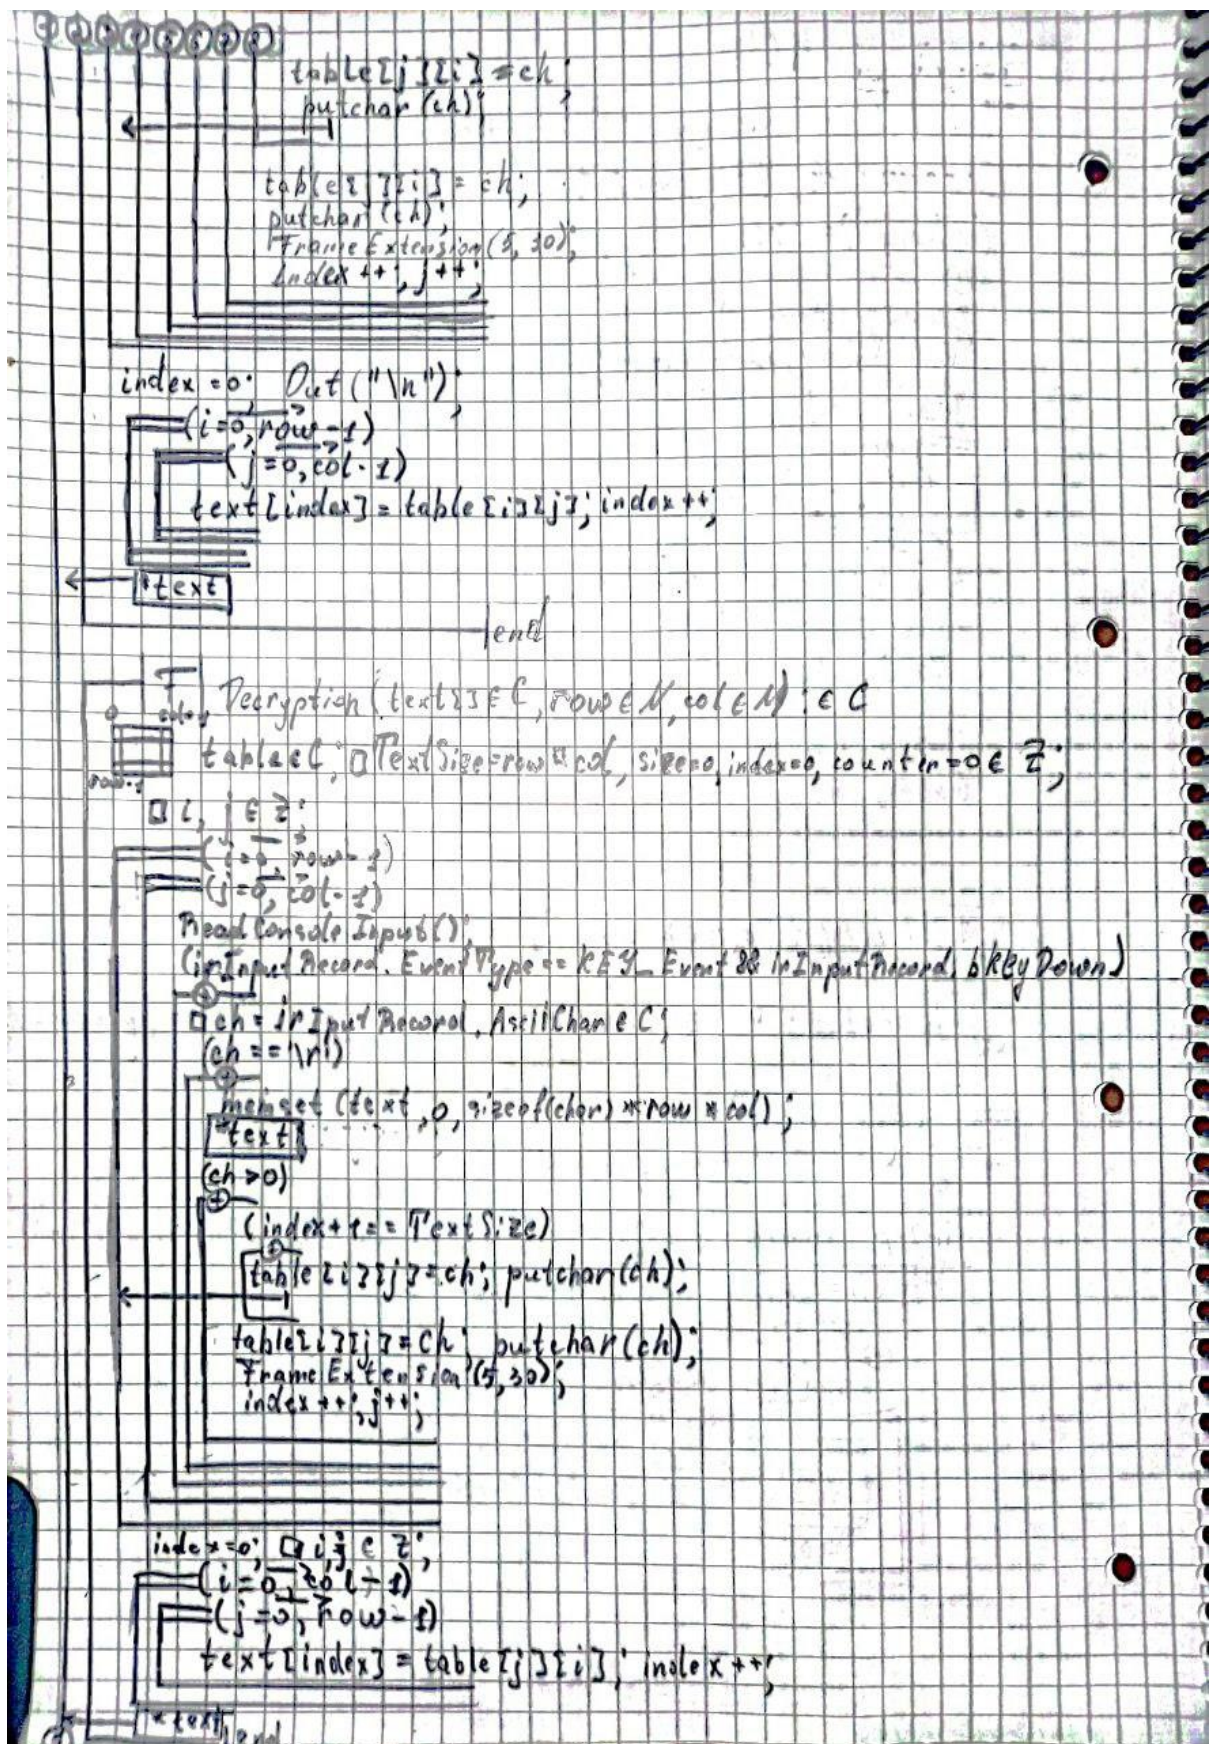 table[j][i] = ch;
putchar(ch);
table[j][i] = ch;
putchar(ch);
FrameExtension(5, 30);
index++; j++;
index = 0; Out("\n");
(i=0, row-1)
(j=0, col-1)
text[index] = table[i][j]; index++;
*text
end
0 col-1 Decryption(text[] ∈ C, row ∈ N, col ∈ N) : ∈ C
table ∈ C; □ TextSize=row*col, size=0, index=0, counter=0 ∈ Z;
row-1
□ i, j ∈ Z;
(i=0, row-1)
(j=0, col-1)
ReadConsoleInput();
(irInputRecord.EventType == KEY_Event && irInputRecord.bKeyDown)
+
□ ch = irInputRecord.AsciiChar ∈ C;
(ch == '\r')
+
memset(text, 0, sizeof(char) * row * col);
*text
(ch > 0)
+
(index+1 == TextSize)
+
table[i][j] = ch; putchar(ch);
table[i][j] = ch; putchar(ch);
FrameExtension(5, 30);
index++; j++;
index=0; □ i, j ∈ Z;
(i=0, col-1)
(j=0, row-1)
text[index] = table[j][i]; index++;
*text end